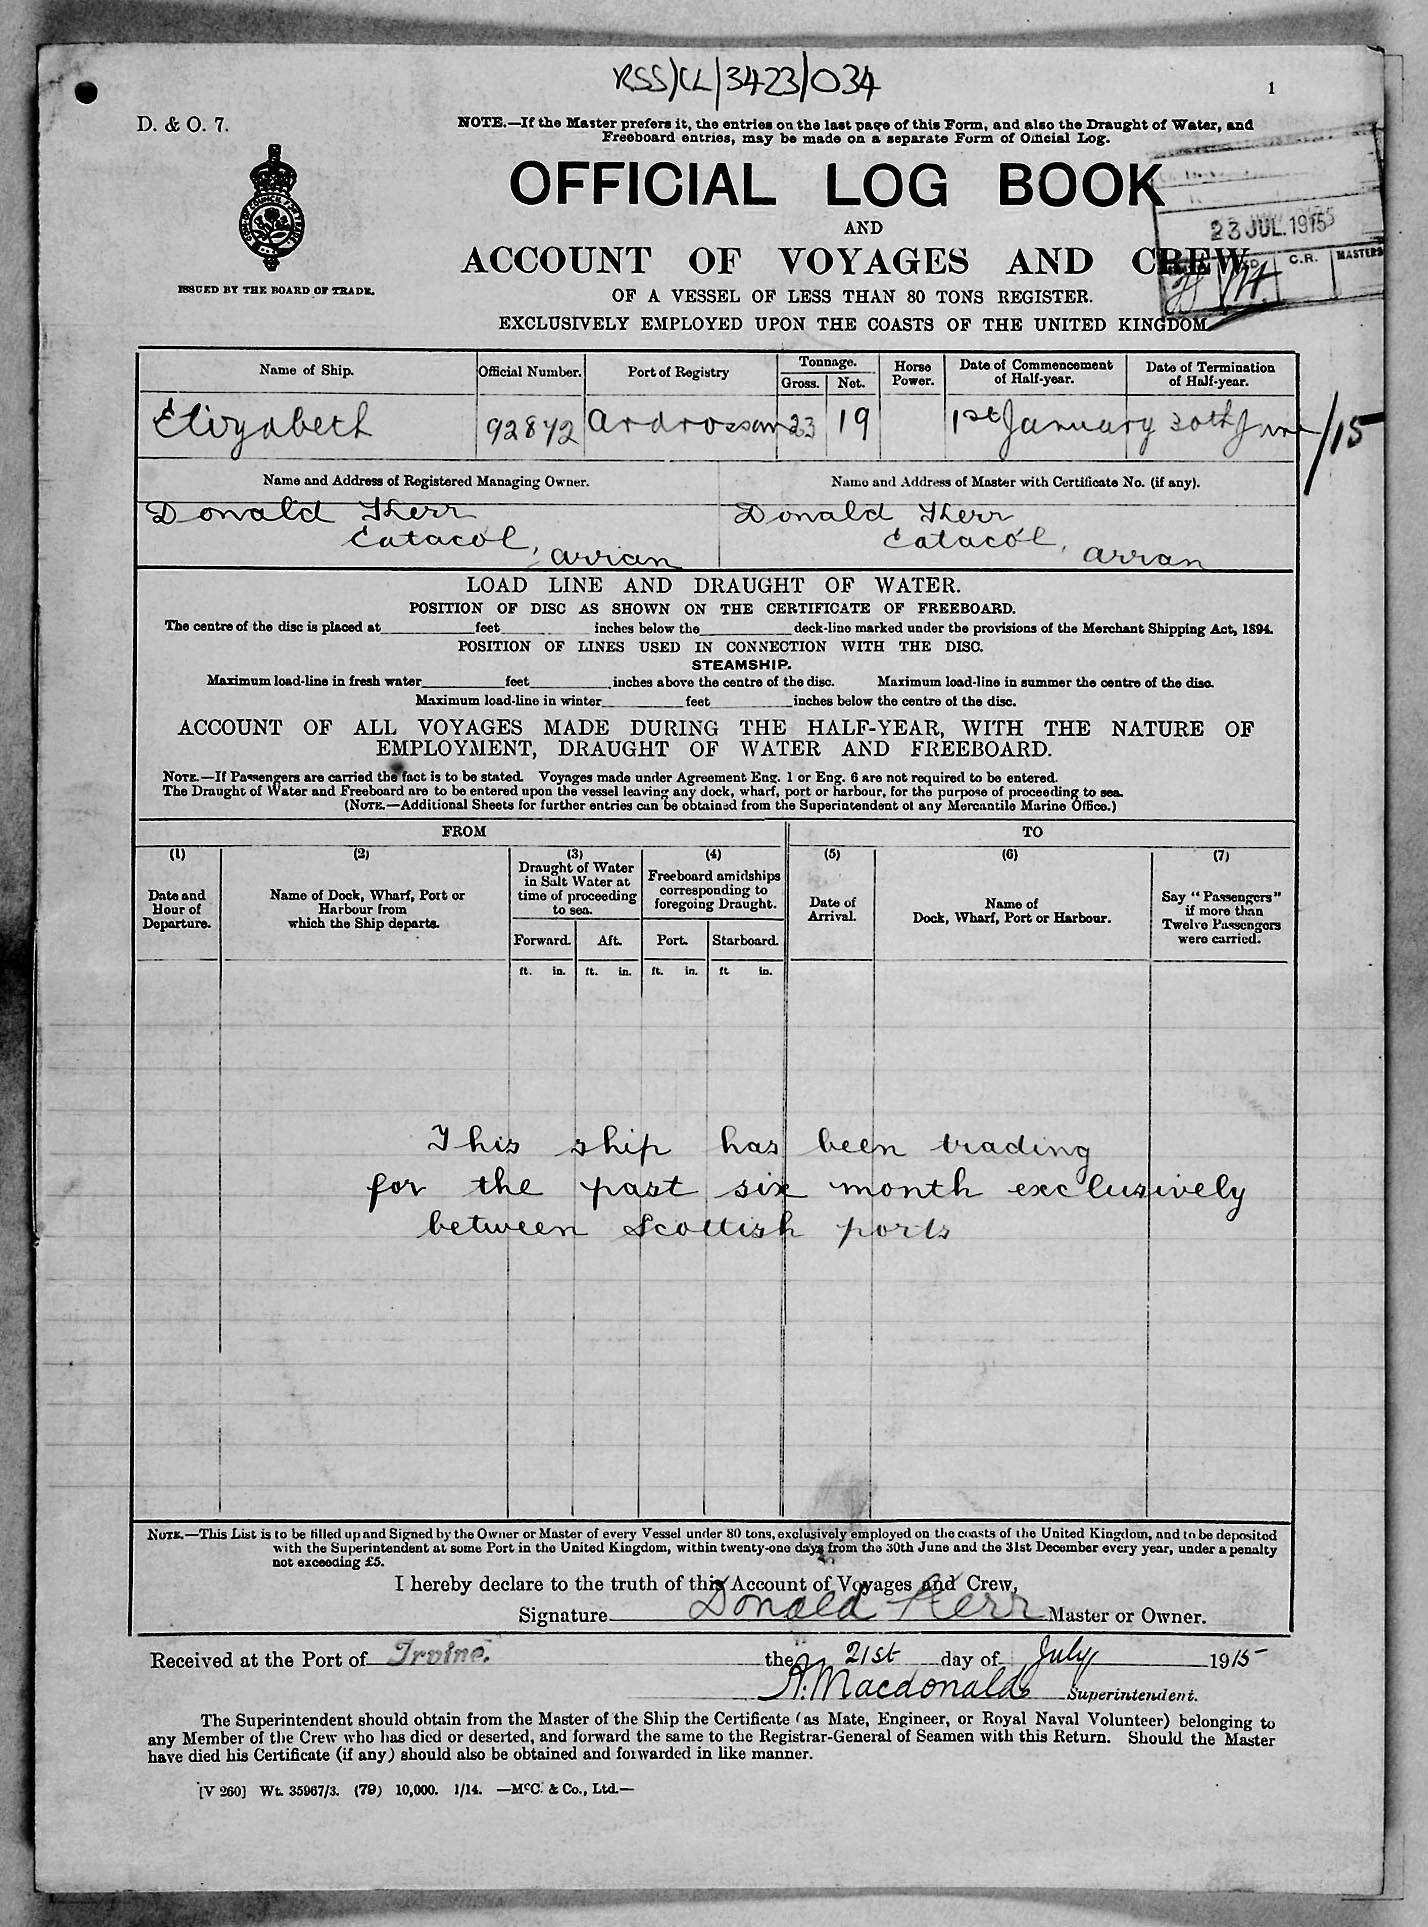 RSS/CL/3423/034
1
D. & O. 7.
NOTE.—If the Master prefers it, the entries on the last page of this Form, and also the Draught of Water, and
Freeboard entries, may be made on a separate Form of Official Log.
OFFICIAL LOG BOOK
AND
ACCOUNT OF VOYAGES AND CREW
OF A VESSEL OF LESS THAN 80 TONS REGISTER.
EXCLUSIVELY EMPLOYED UPON THE COASTS OF THE UNITED KINGDOM
ISSUED BY THE BOARD OF TRADE.
23 JUL. 1915
C.R. MASTERS
Name of Ship. Official Number. Port of Registry Tonnage. Gross. Net. Horse Power. Date of Commencement of Half-year. Date of Termination of Half-year.
Elizabeth 92872 Ardrossan 23 19 1st January 30th June /15
Name and Address of Registered Managing Owner. Name and Address of Master with Certificate No. (if any).
Donald Kerr Donald Kerr
Catacol, Arran Catacol, Arran
LOAD LINE AND DRAUGHT OF WATER.
POSITION OF DISC AS SHOWN ON THE CERTIFICATE OF FREEBOARD.
The centre of the disc is placed at feet inches below the deck-line marked under the provisions of the Merchant Shipping Act, 1894.
POSITION OF LINES USED IN CONNECTION WITH THE DISC.
STEAMSHIP.
Maximum load-line in fresh water feet inches above the centre of the disc. Maximum load-line in summer the centre of the disc.
Maximum load-line in winter feet inches below the centre of the disc.
ACCOUNT OF ALL VOYAGES MADE DURING THE HALF-YEAR, WITH THE NATURE OF
EMPLOYMENT, DRAUGHT OF WATER AND FREEBOARD.
NOTE.—If Passengers are carried the fact is to be stated. Voyages made under Agreement Eng. 1 or Eng. 6 are not required to be entered.
The Draught of Water and Freeboard are to be entered upon the vessel leaving any dock, wharf, port or harbour, for the purpose of proceeding to sea.
(NOTE.—Additional Sheets for further entries can be obtained from the Superintendent of any Mercantile Marine Office.)
FROM TO
(1) (2) (3) (4) (5) (6) (7)
Date and Hour of Departure.
Name of Dock, Wharf, Port or Harbour from which the Ship departs.
Draught of Water in Salt Water at time of proceeding to sea.
Freeboard amidships corresponding to foregoing Draught.
Date of Arrival.
Name of Dock, Wharf, Port or Harbour.
Say "Passengers" if more than Twelve Passengers were carried.
Forward. Aft. Port. Starboard.
ft. in. ft. in. ft. in. ft in.
This ship has been trading
for the past six month exclusively
between Scottish ports
NOTE.—This List is to be filled up and Signed by the Owner or Master of every Vessel under 80 tons, exclusively employed on the coasts of the United Kingdom, and to be deposited
with the Superintendent at some Port in the United Kingdom, within twenty-one days from the 30th June and the 31st December every year, under a penalty
not exceeding £5.
I hereby declare to the truth of this Account of Voyages and Crew,
Signature Donald Kerr Master or Owner.
Received at the Port of Irvine. the 21st day of July 1915
A. Macdonald Superintendent.
The Superintendent should obtain from the Master of the Ship the Certificate (as Mate, Engineer, or Royal Naval Volunteer) belonging to
any Member of the Crew who has died or deserted, and forward the same to the Registrar-General of Seamen with this Return. Should the Master
have died his Certificate (if any) should also be obtained and forwarded in like manner.
[V 260] Wt. 35967/3. (79) 10,000. 1/14. —McC. & Co., Ltd.—